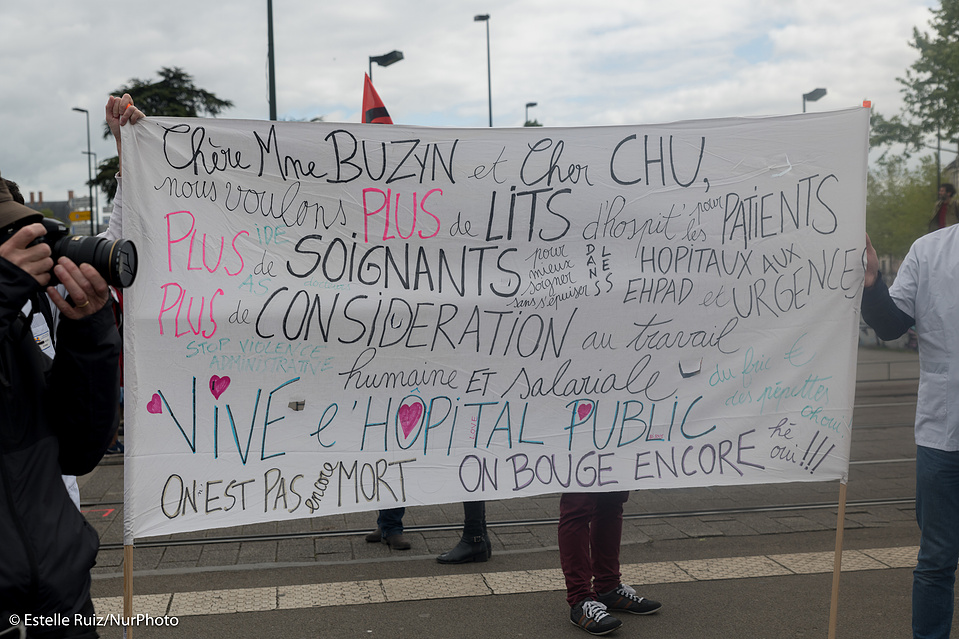 Chère Mme BUZYN et Cher CHU,
nous voulons PLUS de LITS d'hospit' pour les PATIENTS
PLUS IDE AS de SOIGNANTS pour mieux soigner sans s'épuiser DANS LES HOPITAUX AUX EHPAD et URGENCES
PLUS de CONSIDERATION au travail
STOP VIOLENCE ADMINISTRATIVE
humaine ET salariale
du fric €
des pépettes
VIVE l'HÔPITAL PUBLIC
LOVE
ON EST PAS encore MORT ON BOUGE ENCORE hé oui!!!
© Estelle Ruiz/NurPhoto